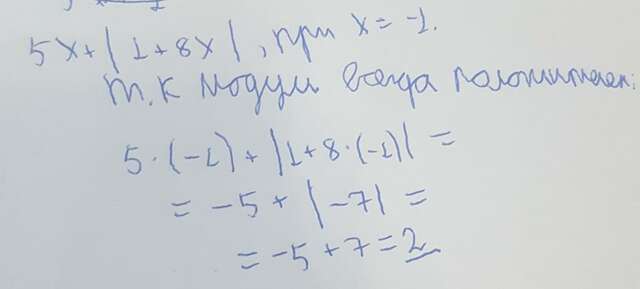 5x+|1+8x|, при x=-1.
т.к модуль всегда положителен:
5·(-1)+|1+8·(-1)|=
=-5+|-7|=
=-5+7=2